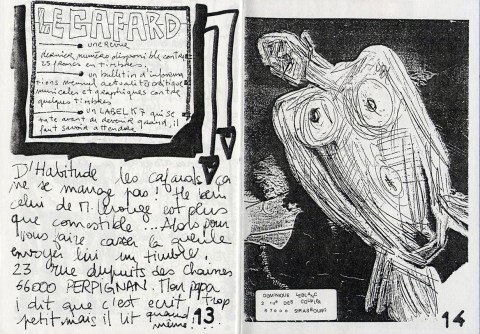 LE CAFARD
une revue
dernier numéro disponible contre
25 francs en timbres.
un bulletin d'informa
tions mensuel actualité critique
musicales et graphiques contre
quelques timbres
un LABEL K7 qui se
tate avant de devenir grand, il
faut savoir attendre
D'Habitude les cafards ça
ne se mange pas! He bein
celui de M. est plus
que comestible... Alors pour
vous faire casser la gueule
envoyez lui un timbre.
23 rue du puits des chaines
66000 PERPIGNAN. Mon papa
i dit que c'est ecrit trop
petit mais il lit quand
même
13
14
DOMINIQUE LEBLANC
67000 STRASBOURG